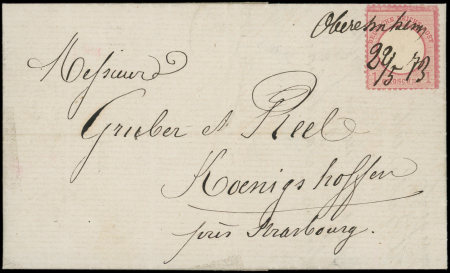 Oberehnheim
29/5 73
Messieurs
Gruber et Reeb
Koenigshoffen
près Strasbourg.